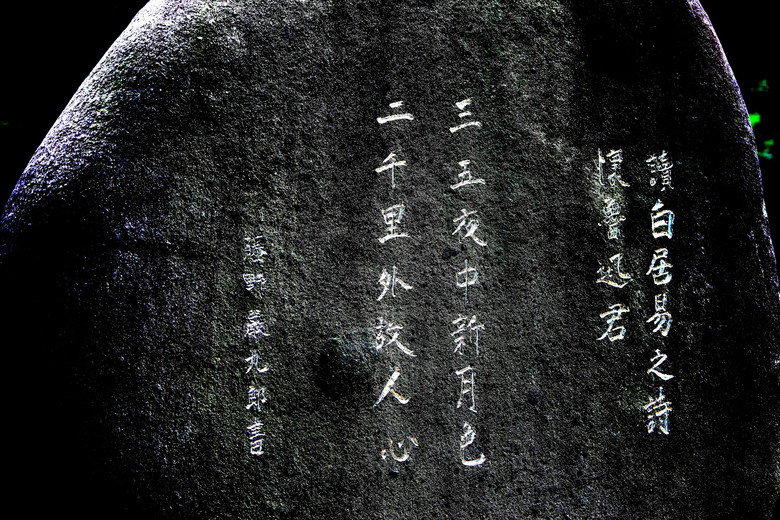 讀白居易之詩
懐魯迅君
三五夜中新月色
二千里外故人心
野九郎書